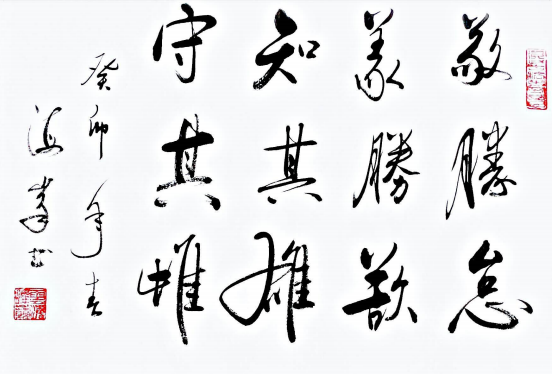 敬勝怠
義勝欲
知其雄
守其雌
癸卯年春
海